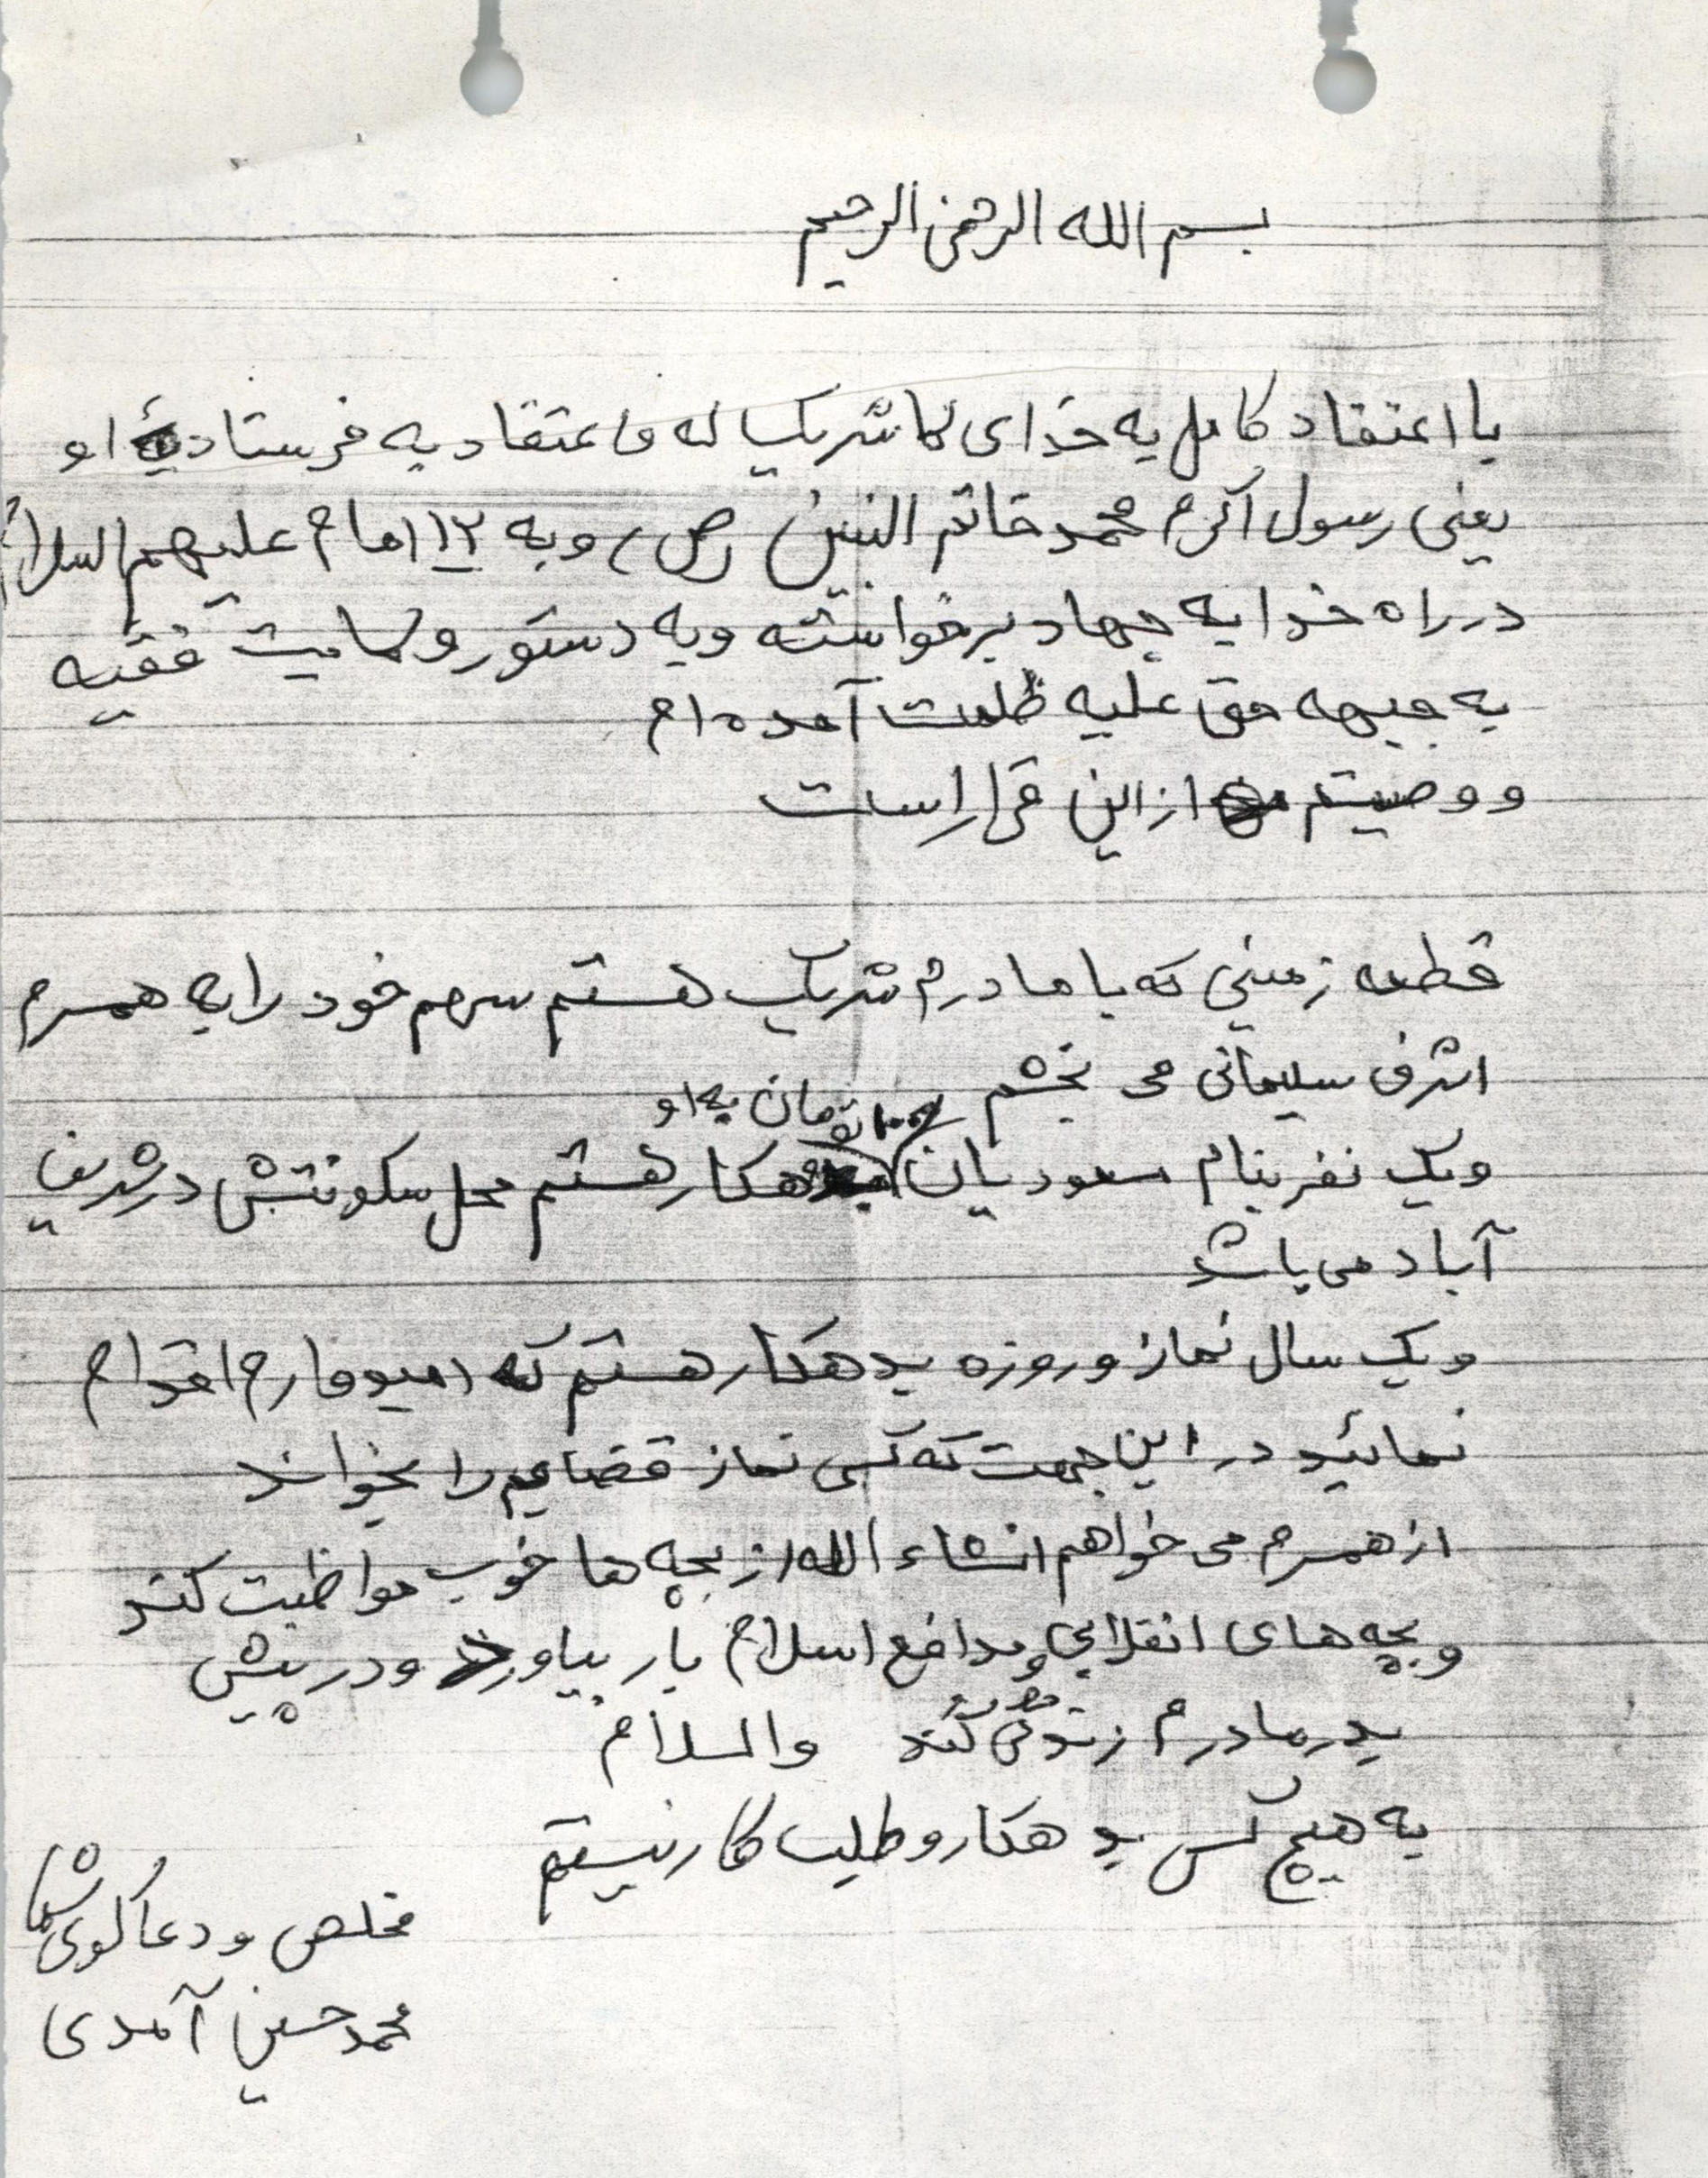 بسم الله الرحمن الرحیم
با اعتقاد کامل به خدای لاشریک له و اعتقاد به فرستادهٔ او
یعنی رسول اکرم محمد خاتم النبیین (ص) و به ۱۲ امام علیهم السلام
در راه خدا به جهاد برخواسته و به دستور ولایت فقیه
به جبهه حق علیه ظلمت آمده ام
و وصیتم از این قرار است
قطعه زمینی که با مادرم شریک هستم سهم خود را به همسرم
اشرف سلیمانی می بخشم
تومان به او
ویک نفر بنام سعودیان بدهکار هستم محل سکونتش در شریف
آباد می باشد
و یک سال نماز و روزه بدهکار هستم که امیدوارم اقدام
نمائید در این جهت که کسی نماز قضایم را بخواند
از همسرم می خواهم انشاء الله از بچه ها خوب مواظبت کند
و بچه های انقلابی و مدافع اسلام بار بیاورد و در پیش
پدر مادرم زندگی کند والسلام
به هیچ کس بدهکار و طلب کار نیستم
مخلص و دعاگوی شما
محمد حسین آمدی